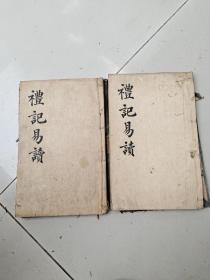 禮記易讀
禮記易讀